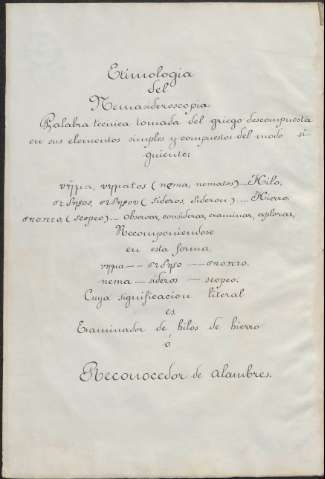 Etimologia
del
Nemasideroscopio.
Palabra técnica tomada del griego descompuesta
en sus elementos simples y compuestos del modo si-
guiente:
νῆμα, νηματος (nema, nematos)... Hilo,
σιδηρος, σιδηρου (sideros, siderou)... Hierro
σκοπεο (scopeo)... Observar, considerar, examinar, explorar,
Recomponiendose
en esta forma
νημα — σιδηρο — σκοπεο.
nema — sideros — scopeo.
Cuya significacion literal
es
Examinador de hilos de hierro
ó
Reconocedor de alambres.